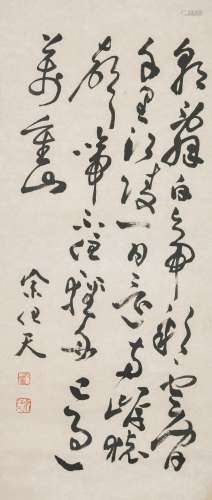 朝辭白帝彩雲間
千里江陵一日還兩岸猿
聲啼不住輕舟已過
萬重山
余任天